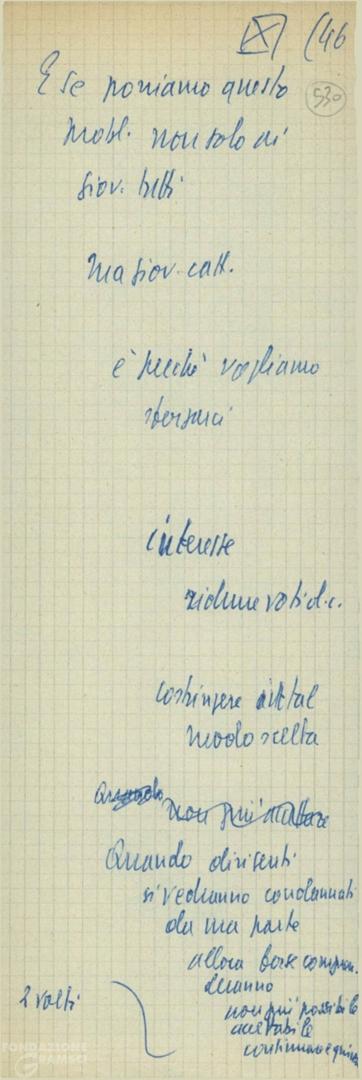 X (46
530
E se poniamo questo
probl. non solo ai
giov. tutti
Ma giov. catt.
è perché vogliamo
sforzarci
interesse
ridurre voti d.c.
costringere in tal
modo scelta
Quando
non più
Quando dirigenti
si vedranno condannati
da una parte
allora forse compren-
deranno
non più possibile
accettabile
continuare
2 volti
FONDAZIONE
GRAMSCI